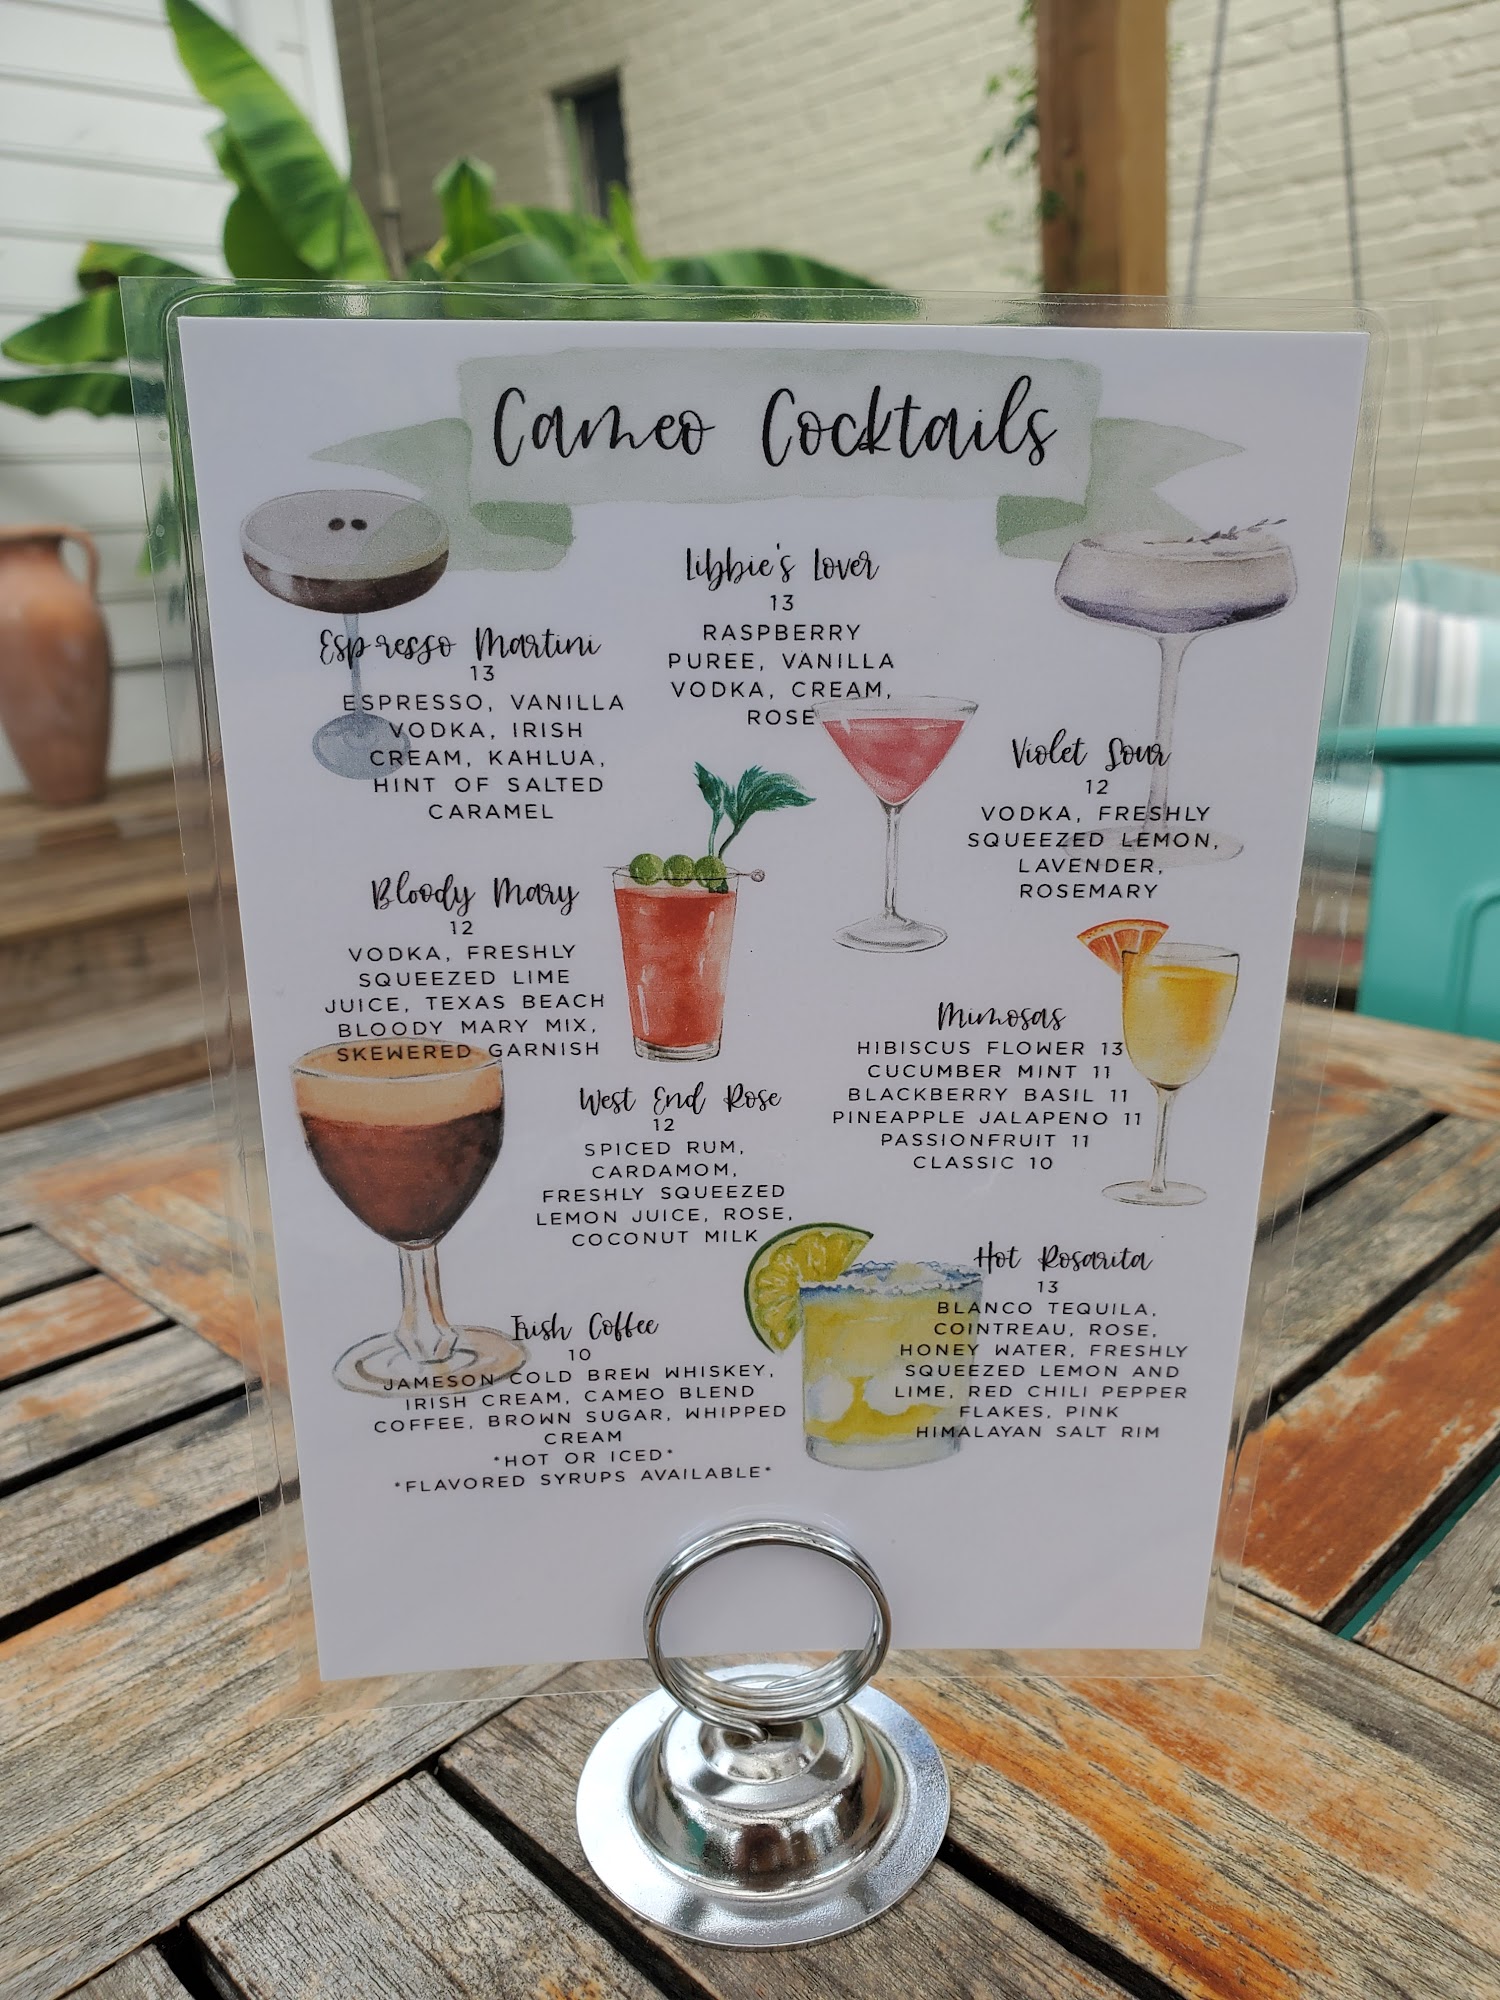 Cameo Cocktails
Libbie's Lover
13
RASPBERRY
PUREE, VANILLA
VODKA, CREAM,
ROSE
Espresso Martini
13
ESPRESSO, VANILLA
VODKA, IRISH
CREAM, KAHLUA,
HINT OF SALTED
CARAMEL
Violet Sour
12
VODKA, FRESHLY
SQUEEZED LEMON,
LAVENDER,
ROSEMARY
Bloody Mary
12
VODKA, FRESHLY
SQUEEZED LIME
JUICE, TEXAS BEACH
BLOODY MARY MIX,
SKEWERED GARNISH
Mimosas
HIBISCUS FLOWER 13
CUCUMBER MINT 11
BLACKBERRY BASIL 11
PINEAPPLE JALAPENO 11
PASSIONFRUIT 11
CLASSIC 10
West End Rose
12
SPICED RUM,
CARDAMOM,
FRESHLY SQUEEZED
LEMON JUICE, ROSE,
COCONUT MILK
Hot Rosarita
13
BLANCO TEQUILA,
COINTREAU, ROSE,
HONEY WATER, FRESHLY
SQUEEZED LEMON AND
LIME, RED CHILI PEPPER
FLAKES, PINK
HIMALAYAN SALT RIM
Irish Coffee
10
JAMESON COLD BREW WHISKEY,
IRISH CREAM, CAMEO BLEND
COFFEE, BROWN SUGAR, WHIPPED
CREAM
*HOT OR ICED*
*FLAVORED SYRUPS AVAILABLE*